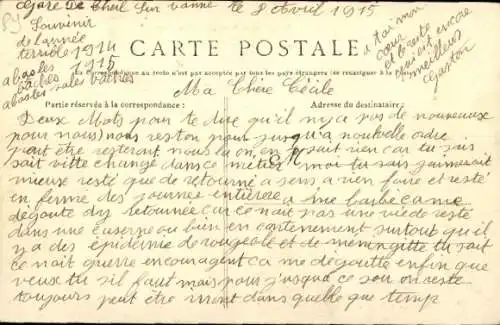 Gare De Theil Sur vanne le 8 Avril 1915
Souvenir
de lannée
terrible 1914
1915
a bas les
baches
a bas les sales baches
CARTE POSTALE
La Correspondance au recto n'est pas acceptée par tous les pays étrangers (se renseigner à la
a toi mon
cœur
et le reste encore
meilleur
Gaston
Ma Chère Cécile
Partie réservée à la correspondance :
Adresse du destinataire :
Deux Mots pour te dire qu'il n'y a pas de nouveaux
pour nous nous reston pour jusqu'a nouvelle ordre
peut être resteront nous la on en sait rien car tu sais
sait vitte changé dans ce métier moi tu sais j'aimerait
mieuse resté que de retourné a sens a rien foire et resté
en ferme des journée entierre a me barbé ca me
degoute dy retournée car ce nait pas une vie de resté
dans une caserne ou bien en contenement surtout qu'il
y a des épidemie de rougeole et de meningitte tu sait
ce nait guerre encouragent ca me dégoutte enfin que
veux tu s'il faut mais pour jusque ce soir on reste
toujours peut être pour dans quelque temp